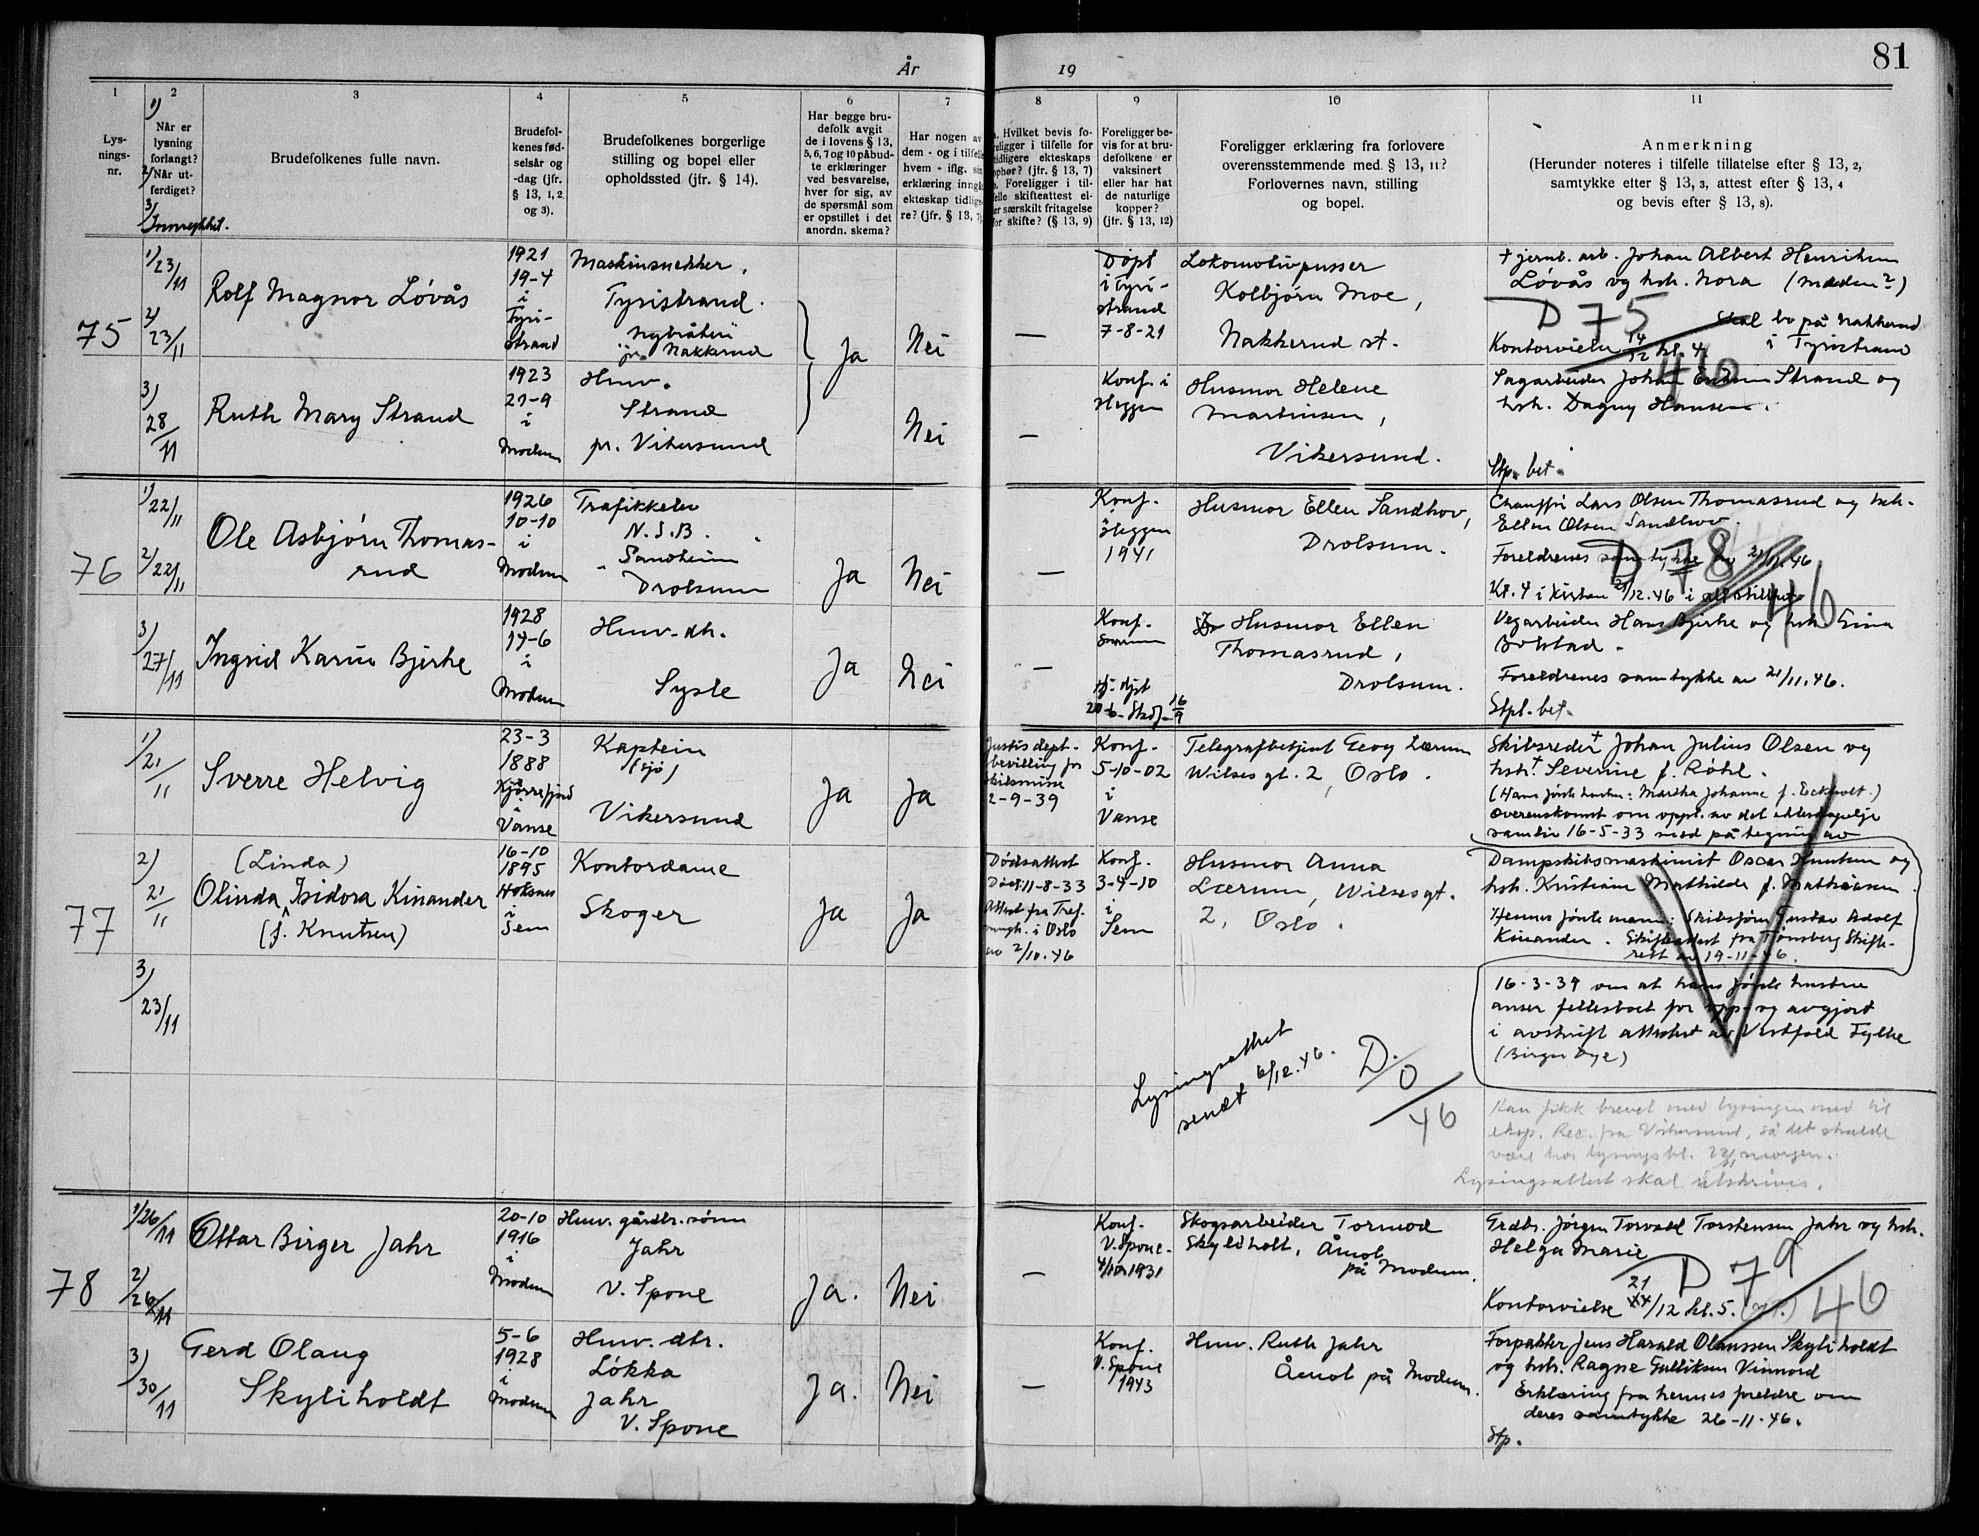 81
År 19
1
Lys-
nings-
nr.
1)
2
Når er
lysning
forlangt?
2) Når ut-
ferdiget?
3)
Innrykket.
3
Brudefolkenes fulle navn.
4
Brudefol-
kenes fød-
selsår og
-dag (jfr.
§ 13, 1, 2
og 3).
5
Brudefolkenes borgerlige
stilling og bopel eller
opholdssted (jfr. § 14).
6
Har begge bru-
defolk avgit
de i lovens § 13,
5, 6, 7 og 10 påbud-
te erklæringer
ved besvarelse,
hver for sig, av
de spørsmål som
er opstillet i det
anordn. skema?
7
Har nogen av
dem - og i tilfelle
hvem - iflg. sin
erklæring inngått
ekteskap tidlige-
re? (jfr. § 13, 7)
8
Hvilket bevis fo-
religger i tilfelle for
tidligere ekteskaps
ophør? (jfr. § 13, 7)
Foreligger i til-
felle skifteattest el-
ler særskilt fritagelse
for skifte? (§ 13, 9)
9
Foreligger be-
vis for at bru-
defolkene er
vaksinert
eller har hat
de naturlige
kopper?
(jfr. § 13, 12)
10
Foreligger erklæring fra forlovere
overensstemmende med § 13, 11?
Forlovernes navn, stilling
og bopel.
11
Anmerkning
(Herunder noteres i tilfelle tillatelse efter § 13, 2,
samtykke efter § 13, 3, attest efter § 13, 4
og bevis efter § 13, 8).
75
1) 23/11
2) 23/11
3) 28/11
Rolf Magnor Løvås
1921
19-4
i
Tyri-
strand
Maskinsnekker,
Tyristrand.
Nybråten
pr. Nakkerud
Ja
Nei
—
Døpt
i Tyri-
strand
7-8-21
Lokomotivpusser
Kolbjørn Moe,
Nakkerud st.
+ jernb. arb. Johan Albert Henriksen
Løvås og hsh. Nora (Madsen?)
D 75
46
Skal bo på Nakkerud
i Tyristrand
Kontorvielse 14/12 kl. 4.
Ruth Mary Strand
1923
21-9
i
Modum
Husv.
Strand
pr. Vikersund
Nei
—
Konf. i
Heggen
Husmor Helene
Martinsen,
Vikersund.
Sagarbeider Johan Strand og
hsh. Dagny Hansen.
Stp. bet.
76
1) 22/11
2) 22/11
3) 27/11
Ole Asbjørn Thomas-
rud
1926
10-10
i
Modum
Trafikkelev
N.S.B.
Sandheim
Drolsum
Ja
Nei
—
Konf.
i
Heggen
1941
Husmor Ellen Sandhov,
Drolsum.
Chauffør Lars Olsen Thomasrud og hsh.
Ellen Olsen Sandhov.
Foreldrenes samtykke av 21/11.46
Kl. 4 i kirken 21/12.46 i all stillhet
D 78
46
Ingrid Karin Bjerke
1928
14-6
i
Modum
Husv. dtr.
Sysle
Ja
Nei
—
Konf.
Snarum
Husmor Ellen
Thomasrud,
Drolsum.
Vegarbeider Hans Bjerke og hsh. Gina
Bolstad.
Foreldrenes samtykke av 21/11.46.
Stpl. bet.
77
1) 21/11
2) 21/11
3) 23/11
Sverre Helvig
23-3
1888
i
Vanse
Kaptein
(sjø)
Vikersund
Ja
Ja
Justisdept.
bevilling for
skilsmisse
2-9-39
Konf.
5-10-02
i
Vanse
Telegrafbetjent Georg Lærum
Wilses gt. 2, Oslo.
Skibsreder + Johan Julius Olsen og
hsh. + Severine f. Røhl.
(Hans første hustru: Martha Johanne f. Eckholt.)
Overenskomst om oppl. av det ekteskapelige
samliv 16-5-33 med påtegning av
(Linda)
Olinda Isidora Kinander
(f. Knutsen)
16-10
1895
i
Sem
Kontordame
Skoger
Ja
Ja
Dødsattest
Død: 11-8-33
Attest fra
i Oslo
av 2/10.46
Konf.
3-4-10
i
Sem
Husmor Anna
Lærum, Wilses gt.
2, Oslo.
Dampskibsmaskinist Oscar Knutsen og
hsh. Kristiane Mathilde f. Mathiasen.
Hennes første mann: Skibsfører Gustav Adolf
Kinander. Skifteattest fra Tønsberg Skifte-
rett av 19-11-46.
16-3-39 om at hans første hustru
anser fellesboet for opp- og avgjort
i avskrift attestert av Vestfold Fylke
(Birger Dye)
Lysingsattest
sendt 6/12.46.
D.
0
46
Han fikk brevet med lysingen med til
eksp. Rec. fra Vikersund, så det skulde
være hos lysingsbl. 22/11 morgen.
Lysingsattest skal utskrives.
78
1) 26/11
2) 26/11
3) 30/11
Ottar Birger Jahr
20-10
1916
i
Modum
Husv. gårdbr. sønn
Jahr
V. Spone
Ja.
Nei
—
Konf.
V. Spone
1931
Skogsarbeider Tormod
Skyliholt, Åmot
på Modum.
Grdbr. Jørgen Torvald Torstensen Jahr og hsh.
Helga Marie
D 79
46
Kontorvielse 21/12 kl. 5.
Gerd Olaug
Skyliholdt
5-6
1928
i
Modum
Husv. dtr.
Løkka
Jahr
V. Spone
Ja.
Nei
—
Konf.
V. Spone
1943
Husv. Ruth Jahr
Åmot på Modum.
Forpakter Jens Harald Olaussen Skyliholdt
og hsh. Ragne Gulliksen Vinnord
Erklæring fra hennes foreldre om
deres samtykke 26-11-46.
Stp.